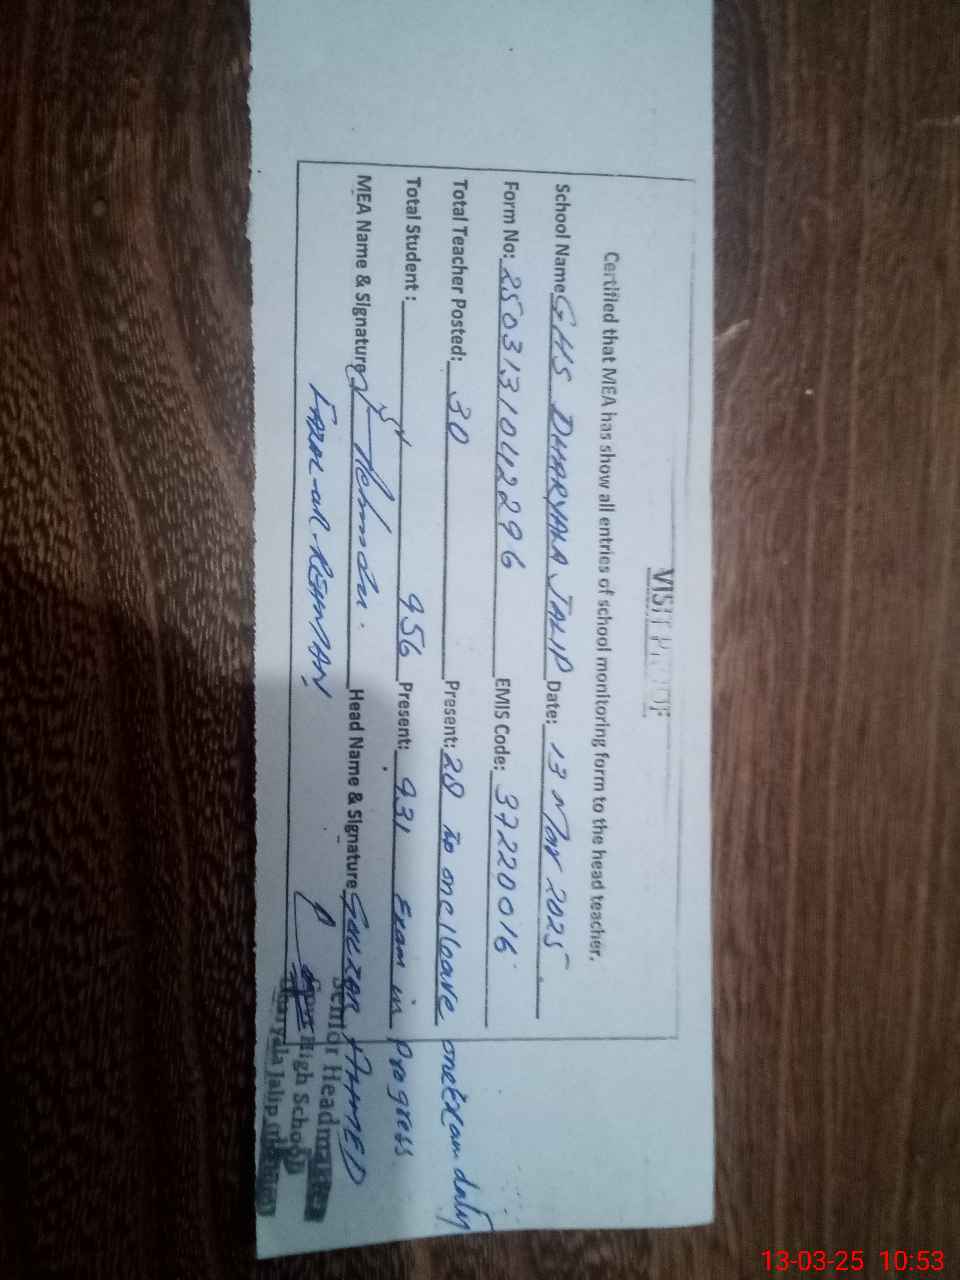 VISIT PROOF
Certified that MEA has show all entries of school monitoring form to the head teacher.
School Name GHS DHARYALA JALIP Date: 13 Mar 2025
Form No: 2503131042296 EMIS Code: 37220016
Total Teacher Posted: 30 Present: 28 one leave one exam duty
Total Student : 956 Present: 931 Exam in Progress
MEA Name & Signature Rehman. Head Name & Signature GULZAR AHMED
FAZAL-UR-REHMAN
Senior Headmaster
High School
Dharyala Jalip
13-03-25 10:53